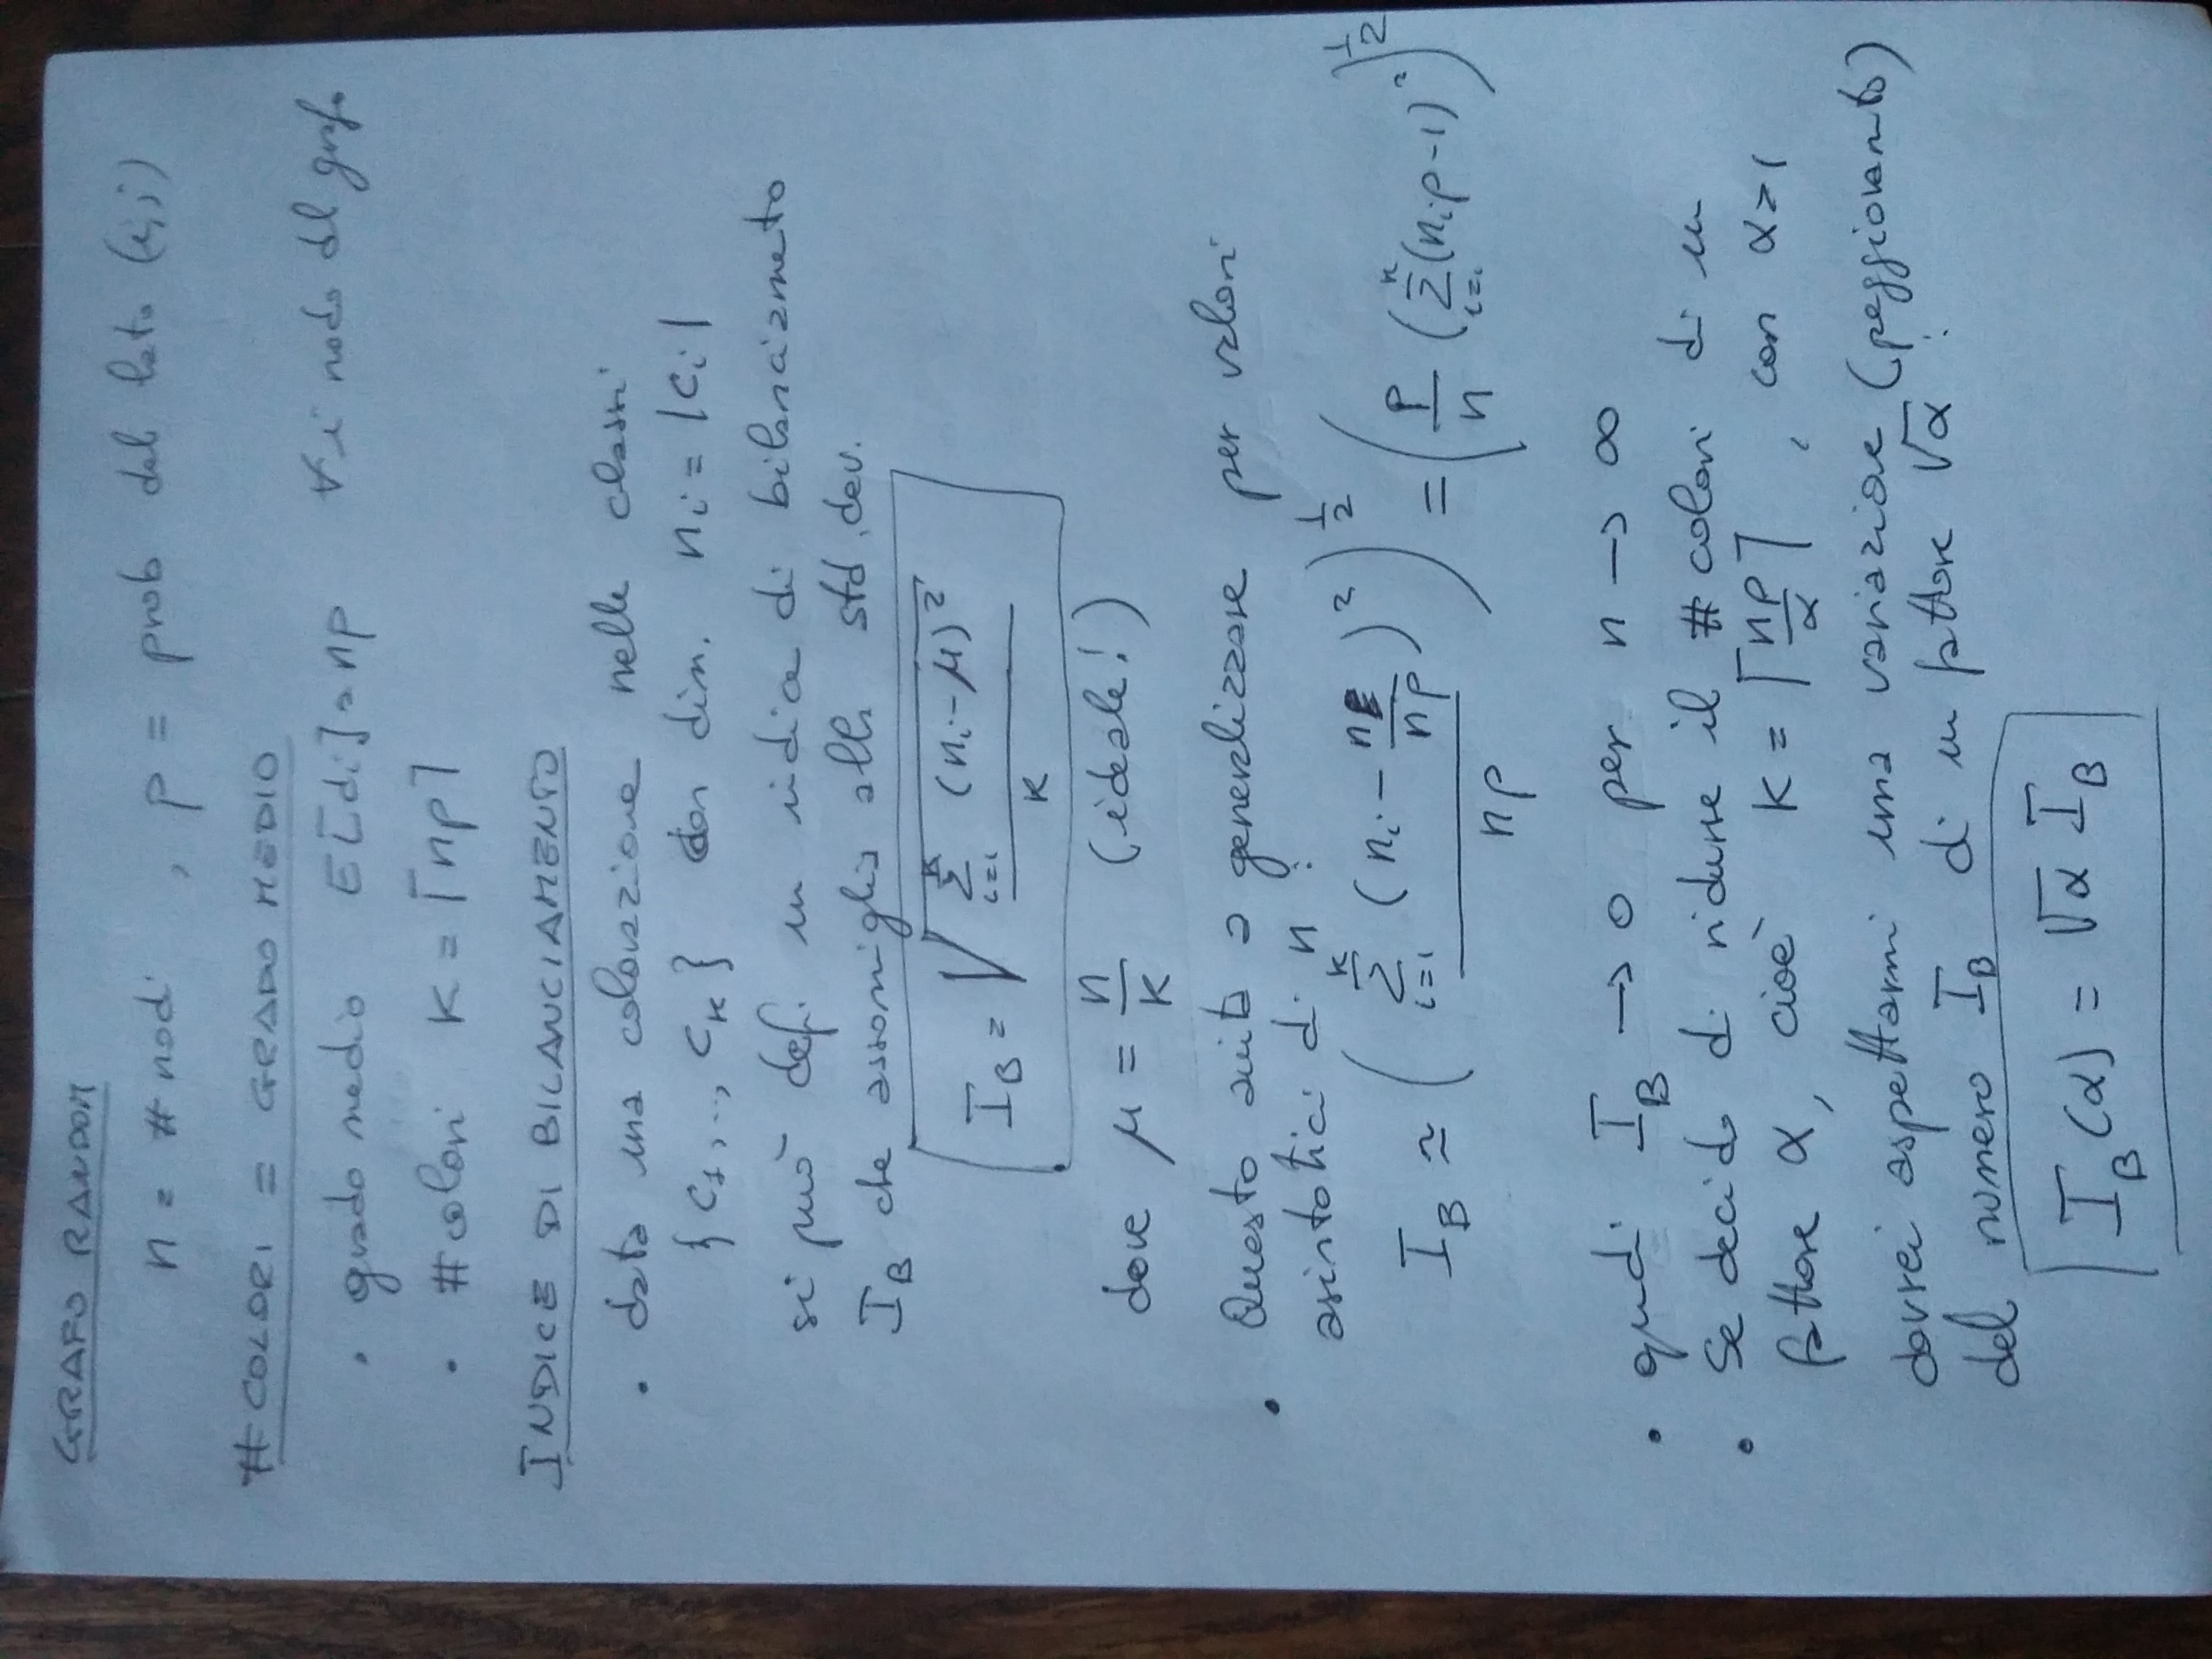 GRAFO RANDOM
n = # nodi , p = prob del lato (i,j)
# COLORI = GRADO MEDIO
• grado medio E[di] = np ∀ i nodo del grafo
• # colori K = ⌈np⌉
INDICE DI BILANCIAMENTO
• data una colorazione nelle classi
{C₁, .., C_K} con dim. nᵢ = |Cᵢ|
si può def. un indice di bilanciamento
I_B che assomiglia alla std. dev.
I_B = √(∑_{i=1}^{K} (nᵢ - μ)² / K)
dove μ = n/K (ideale!)
• Questo aiuta a generalizzare per valori
asintotici di n :
I_B ≃ (∑_{i=1}^{K} (nᵢ - n/np)² / np)^{1/2} = (p/n (∑_{i=1}^{K} (nᵢp - 1)²)^{1/2}
• quidi I_B → 0 per n → ∞
• Se decido di ridurre il # colori di un
fattore α, cioè K = ⌈np/α⌉ , con α > 1
dovrei aspettarmi una variazione (peggioramento)
del numero I_B di un fattore √α :
I_B(α) = √α I_B